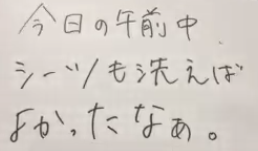 今日の午前中
シーツも洗えば
よかったなぁ。